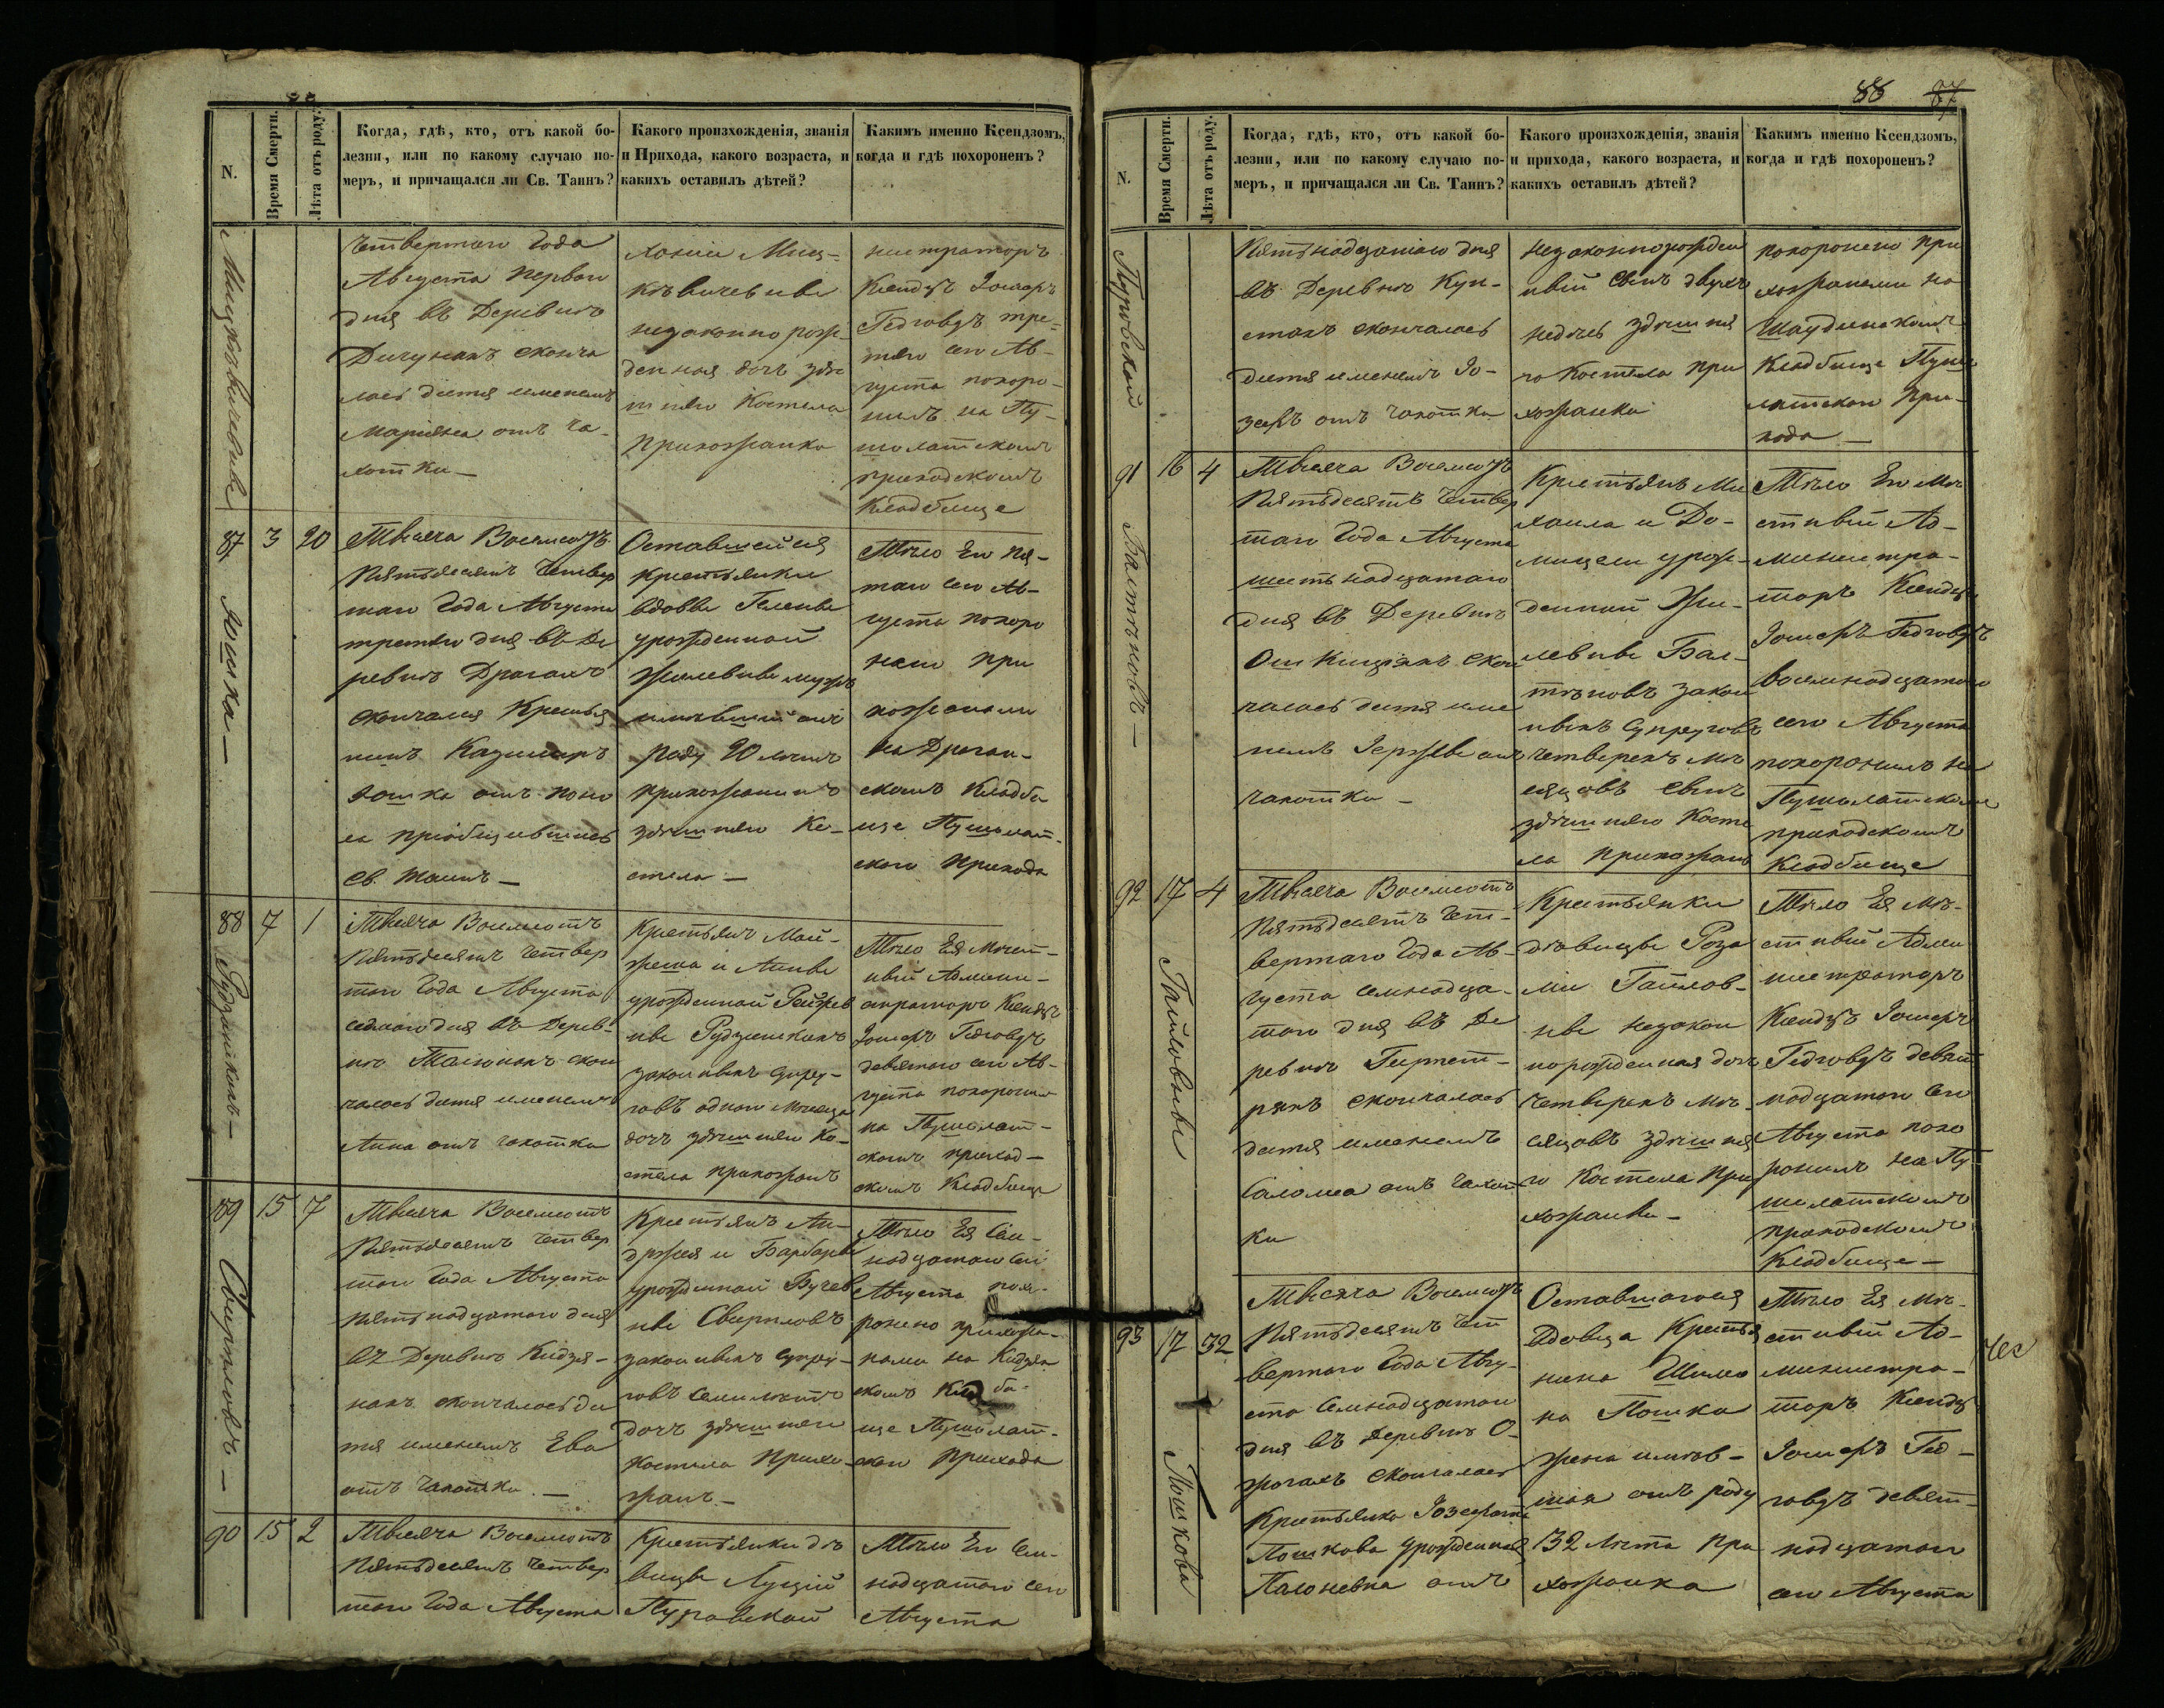 N.
Время Смерти.
Лѣта отъ роду.
Когда, гдѣ, кто, отъ какой бо-
лезни, или по какому случаю по-
меръ, и причащался ли Св. Таинъ?
Какого произхожденія, званія
и Прихода, какого возраста, и
какихъ оставилъ дѣтей?
Какимъ именно Ксендзомъ,
когда и гдѣ похороненъ?
четвертаго Года
Августа перваго
дня въ Деревнѣ
сконча
лось дитя именемъ
Маріяна отъ ча-
хотки —
незаконно рож-
денная дочь здѣ
шняго Костела
Прихожанка
нистраторъ
Ксендзъ Іосифъ
Гедговдъ тре-
тяго сего Ав-
густа похоро-
нилъ на Пу-
шолатскомъ
приходскомъ
Кладбище
87
3
20
Юшка —
Тысяча Восемсотъ
Пятьдесятъ четвер
таго Года Августа
третяго дня въ Де
ревнѣ Драгахъ
скончался Крестья
нинъ Казимиръ
Юшка отъ поно
са пріобщившись
Св. Таинъ —
Оставшейся
крестьянки
вдовы Гелены
урожденной
мужъ
имѣвшій отъ
роду 20 лѣтъ
прихожанинъ
здѣшняго Ко-
стела —
Тѣло Его пя-
таго сего Ав-
густа похоро
нено при
хожанами
на Драган-
скомъ Кладби
ще Пушолат-
скаго Прихода
88
7
1
Тысяча Восемсотъ
Пятьдесятъ четвер
таго Года Августа
седмаго дня въ Дерев-
нѣ скон
чалось дитя именемъ
Анна отъ чахотки
Крестьянъ Мат-
и Анны
урожденной
законныхъ супру-
говъ одного Мѣсяца
дочь здѣшняго Ко-
стела прихожанъ
Тѣло Ея Мѣст-
ный Админи-
страторъ Ксендзъ
Іосифъ Гедговдъ
девятаго сего Ав-
густа похоронилъ
на Пушолат-
скомъ приход-
скомъ Кладбище
89
15
7
Свирпловъ —
Тысяча Восемсотъ
Пятьдесятъ четвер
таго Года Августа
пятьнадцатаго дня
въ Деревнѣ Кидзя-
нахъ скончалось ди
тя именемъ Ева
отъ чахотки. —
Крестьянъ Ан-
држея и Барбары
урожденной
Свирпловъ
законныхъ супру-
говъ семилѣтн
дочь здѣшняго
Костела Прихо-
жанъ —
Тѣло Ея Сем-
надцатаго сего
Августа похо-
ронено прихожа-
нами на Кидзян
скомъ Кладби-
ще Пушолат-
скаго Прихода
90
15
2
Тысяча Восемсотъ
Пятьдесятъ четвер
таго Года Августа
Крестьянки дѣ
вицы Луціи
Пуровской
Тѣло Его Сем-
надцатаго сего
Августа
88 87
N.
Время Смерти.
Лѣта отъ роду.
Когда, гдѣ, кто, отъ какой бо-
лезни, или по какому случаю по-
меръ, и причащался ли Св. Таинъ?
Какого произхожденія, званія
и прихода, какого возраста, и
какихъ оставилъ дѣтей?
Какимъ именно Ксендзомъ,
когда и гдѣ похороненъ?
Пуровской
Пятьнадцатаго дня
въ Деревнѣ Кун-
скончалось
дитя именемъ Іо-
зефъ отъ чахотки
незаконнорожден
ный сынъ двухъ
недѣль здѣшня
го Костела при
хожанки
похоронено при
хожанами на
Кладбище Пушо
латскаго При-
хода —
91
16
4
Балтѣновъ —
Тысяча Восемсотъ
Пятьдесятъ четвер
таго Года Августа
шестьнадцатаго
дня въ Деревнѣ
скон
чалось дитя име
немъ Іержы отъ
чахотки —
Крестьянъ Ми
хаила и До-
мицели урож-
денной
Бал-
тѣновъ закон
ныхъ Супруговъ
четырехъ мѣ
сяцовъ сынъ
здѣшняго Косте
ла прихожанъ
Тѣло Его Мѣ
стный Ад-
министра-
торъ Ксендзъ
Іосифъ Гедговдъ
восемнадцатаго
сего Августа
похоронилъ на
Пушолатскомъ
приходскомъ
Кладбище
92
17
4
Гайловны
Тысяча Восемсотъ
Пятьдесятъ чет-
вертаго Года Ав-
густа семнадца-
таго дня въ Де
ревнѣ
скончалось
дитя именемъ
Саломеа отъ чахот
ки
Крестьянки
дѣвицы Роза
ліи Гайлов-
ны незакон
норожденная дочь
четырехъ мѣ-
сяцовъ здѣшня
го Костела При
хожанки —
Тѣло Ея мѣ-
стный Адми
нистраторъ
Ксендзъ Іосифъ
Гедговдъ девят
надцатаго сего
Августа похо
ронилъ на Пу-
шолатскомъ
приходскомъ
Кладбище —
93
17
32
Пошкова
Тысяча Восемсотъ
Пятьдесятъ чет
вертаго Года Авгу-
ста Семнадцатаго
дня въ Деревнѣ О-
жогахъ скончалась
Крестьянка Іозефата
Пошкова урожденная
отъ
Оставшагося
вдовца Крестья
нина Шимо
на Пошка
жена имѣв-
шая отъ роду
32 лѣта при
хожанка
Тѣло Ея мѣ-
стный Ад-
министра-
торъ Ксендзъ
Іосифъ Гед-
говдъ девят-
надцатаго
сего Августа